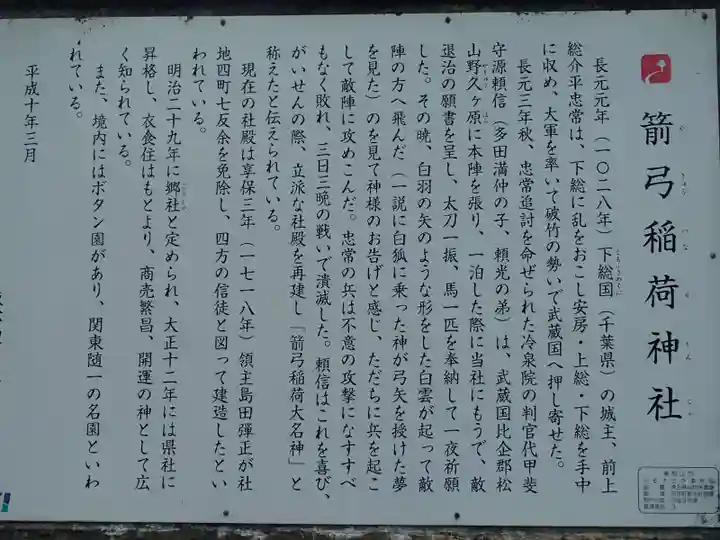 箭弓稲荷神社
長元元年（一〇二八年）下総国（千葉県）の城主、前上
総介平忠常は、下総に乱をおこし安房・上総・下総を手中
に収め、大軍を率いて破竹の勢いで武蔵国へ押し寄せた。
長元三年秋、忠常追討を命ぜられた冷泉院の判官代甲斐
守源頼信（多田満仲の子、頼光の弟）は、武蔵国比企郡松
山野久ヶ原に本陣を張り、一泊した際に当社にもうで、敵
退治の願書を呈し、太刀一振、馬一匹を奉納して一夜祈願
した。その暁、白羽の矢のような形をした白雲が起って敵
陣の方へ飛んだ（一説に白狐に乗った神が弓矢を授けた夢
を見た）のを見て神様のお告げと感じ、ただちに兵を起こ
して敵陣に攻めこんだ。忠常の兵は不意の攻撃になすすべ
もなく敗れ、三日三晩の戦いで潰滅した。頼信はこれを喜び、
がいせんの際、立派な社殿を再建し「箭弓稲荷大名神」と
称えたと伝えられている。
現在の社殿は享保三年（一七一八年）領主島田弾正が社
地四町七反余を免除し、四方の信徒と図って建造したとい
われている。
明治二十九年に郷社と定められ、大正十二年には県社に
昇格し、衣食住はもとより、商売繁昌、開運の神として広
く知られている。
また、境内にはボタン園があり、関東随一の名園といわ
れている。
平成十年三月